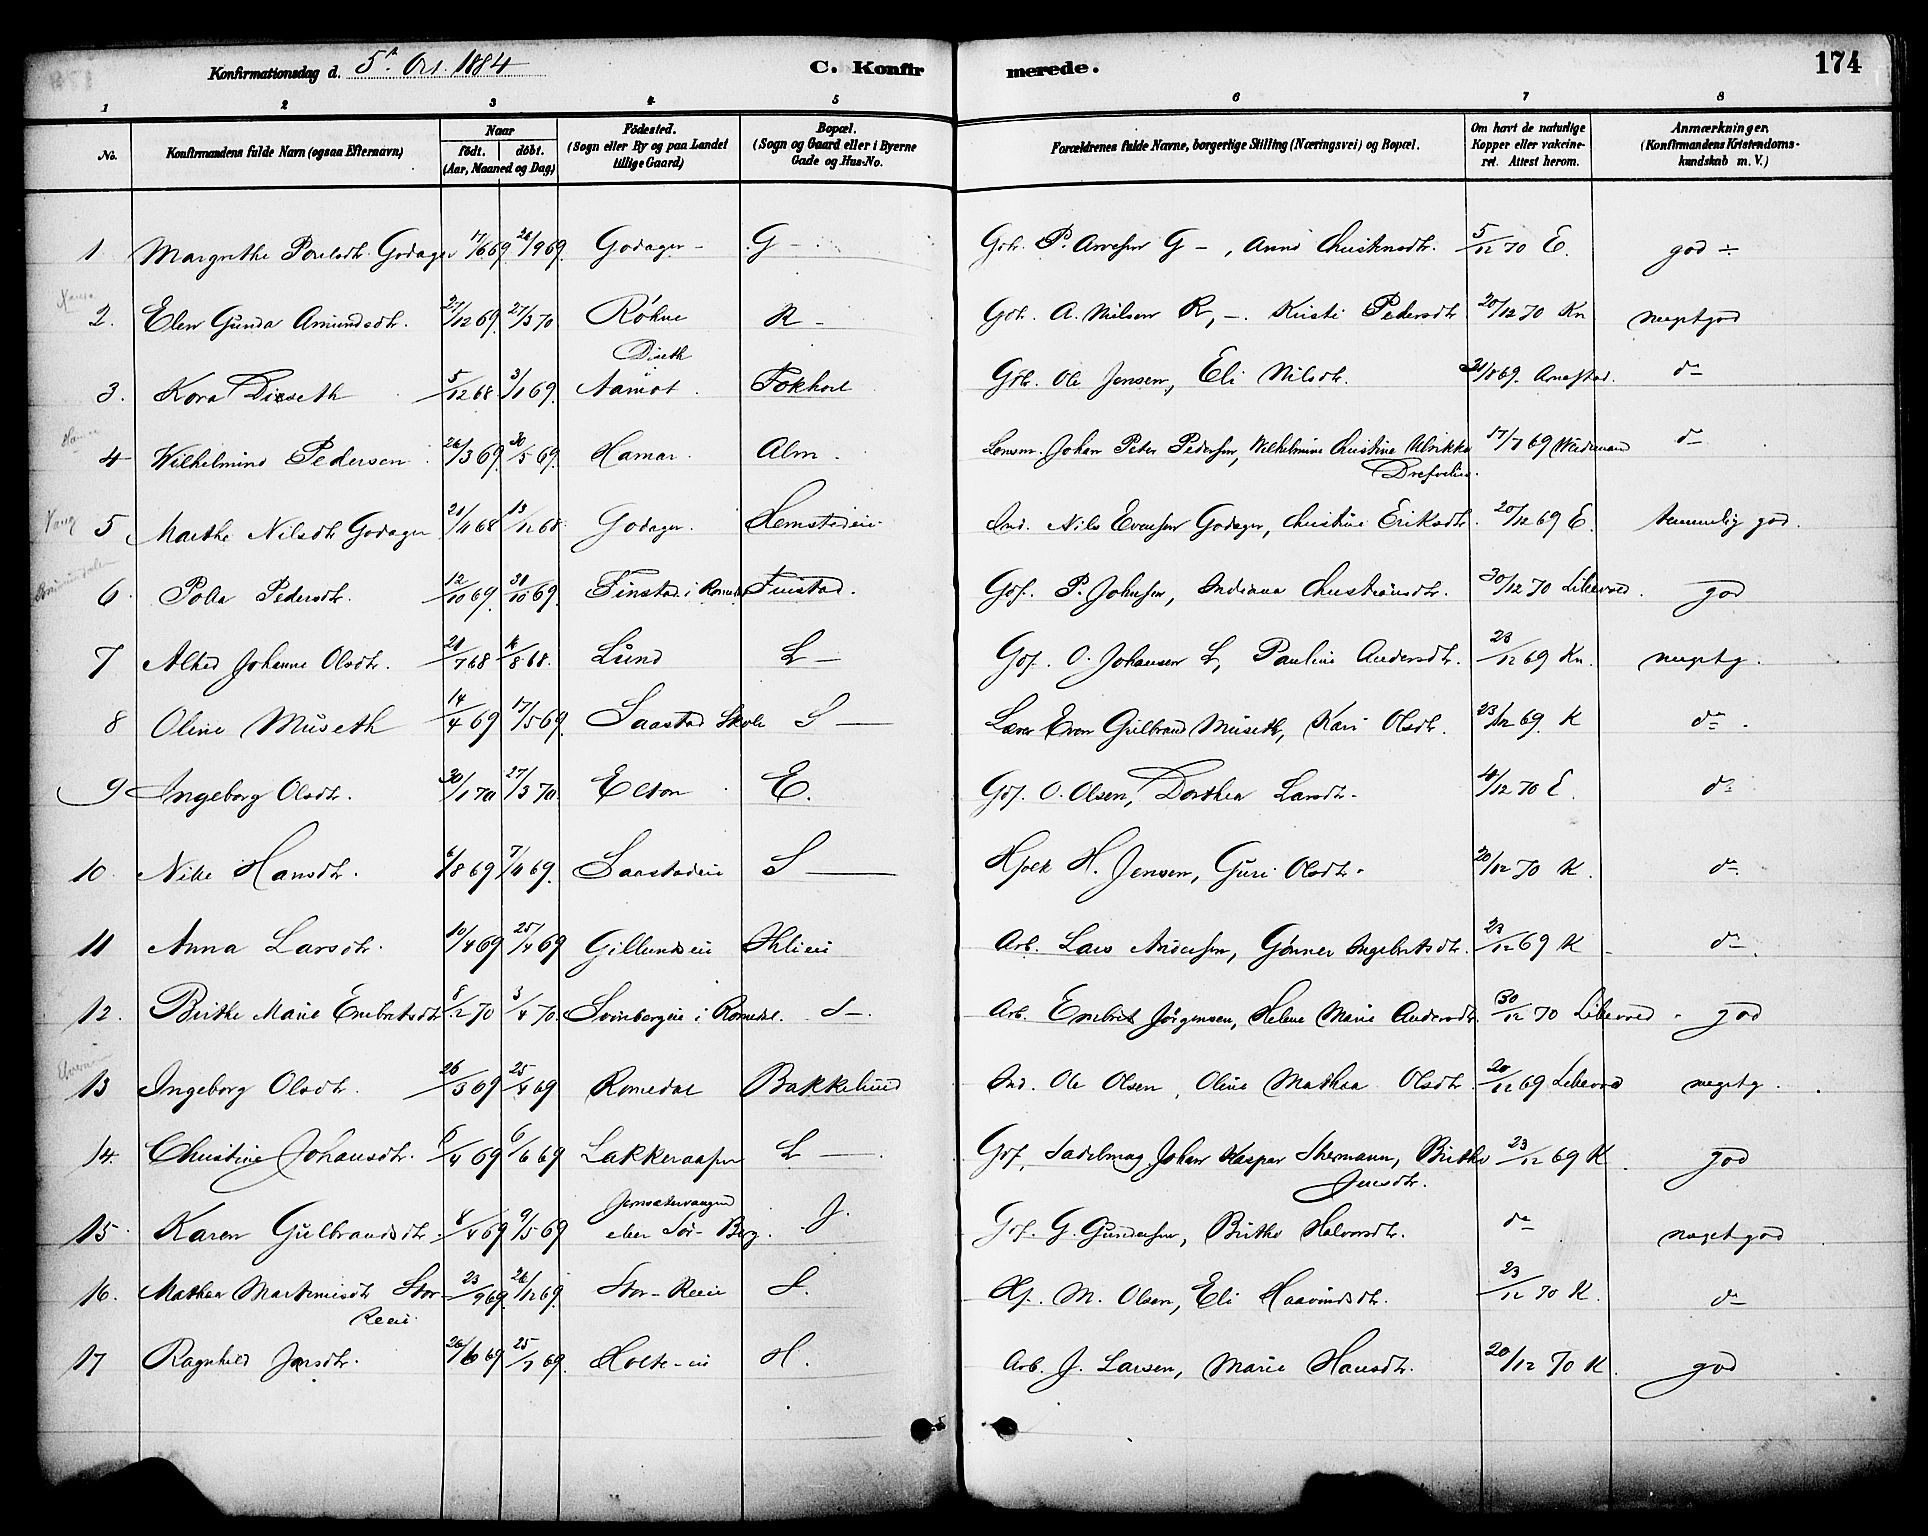 Konfirmationsdag d. 5te Oct 1884 C. Konfirmerede. 174
1 2 3 4 5 6 7 8
No. Konfirmandens fulde Navn (ogsaa Efternavn) Naar født. døbt. (Aar, Maaned og Dag) Fødested. (Sogn eller By og paa Landet tillige Gaard) Bopæl. (Sogn og Gaard eller i Byerne Gade og Hus-No. Forældrenes fulde Navne, borgerlige Stilling (Næringsvei) og Bopæl. Om havt de naturlige Kopper eller vakcineret. Attest herom. Anmærkninger. (Konfirmandens Kristendomskundskab m. V.)
1 Margrethe Povelsdtr. Godager 17/6 69 26/9 69 Godager - G - P. Arvesen G -, Anne Christensdtr. 5/12 70 E. god ÷
2. Elen Gunda Amundsdtr. 27/12 69 27/3 70 Røhne R - A. Nilsen R, -. Kirsti Pedersdtr 20/12 70 Kn megetgod
3. Kora Diseth 5/12 68 3/1 69 Diseth Aamot Fokhol Ole Jensen, Eli Nilsdtr. 21/8 69. do
4 Wilhelmine Pedersen 26/3 69 30/5 69. Hamar. Alm. Lensm. Johan Peter Pedersen, Wilhelmine Christine Ulrikke Drefvelin. 17/7 69 Weidemann do
5 Marthe Nilsdtr Godager 21/11 68 13/12 68 Godager. Hemstadeie Ind. Nils Evensen Godager, Christine Eriksdtr. 20/12 69 E. temmelig god.
6. Polla Pedersdtr. 12/10 69 31/10 69. Finstad i Romedal Finstad. Gbf. P. Johnsen, Indiana Christiansdtr. 30/12 70 Lilleved. god
7 Alhed Johanne Olsdtr. 21/7 68 16/8 68. Lund L - Gbf. O. Johansen L, Pauline Andersdtr. 23/12 69 Kn. megetg.
8 Oline Museth 14/4 69 17/5 69. Saastad Skole S - Lærer Even Gulbrand Museth, Kari Olsdtr. 23/12 69. K do.
9 Ingeborg Olsdtr. 30/1 70 27/3 70. Elton E. Gbf. O. Olsen, Dorthea Larsdtr. 4/12 70 E. do
10. Nille Hansdtr. 6/8 69 7/11 69. Saastadeie S - H. Jensen, Guri Olsdtr. 20/12 70 K. do
11 Anna Larsdtr. 10/4 69 25/4 69 Gillundseie Arb. Lars Andersen, Gønner Ingebretsdtr. 23/12 69 K do.
12. Birthe Marie Embretsdtr 8/2 70 3/4 70. Svinbergeie i Romedal. S -. Arb. Embret Jørgensen, Helene Marie Andersdtr. 30/12 70 Lilleved. god
13 Ingeborg Olsdtr. 26/3 69 25/4 69 Romedal Bakkelund Ind. Ole Olsen, Oline Mathea Olsdtr. 20/12 69 Lilleved megetg.
14. Christine Johansdtr. 6/4 69 6/6 69 Lakkeraasen L -. Gbf, Sadelmag Johan Kaspar Shermann, Birthe Jensdtr. 23/12 69 K. god
15. Karen Gulbrandsdtr. 8/4 69 9/5 69 Jernsætervangen eller Sør-Berg. J. Gbf. G. Gundersen, Birthe Halvorsdtr. do megetgod
16. Mathea Martinusdtr Stor-Reeie 23/9 69 26/12 69. Stor-Reeie S. M. Olsen, Eli Haavindsdtr. 23/12 70 K. do
17 Ragnhild Jensdtr. 26/6 69 25/7 69. Holte-eie H. Arb. J. Larsen, Marie Hansdtr. 20/12 70 K. god